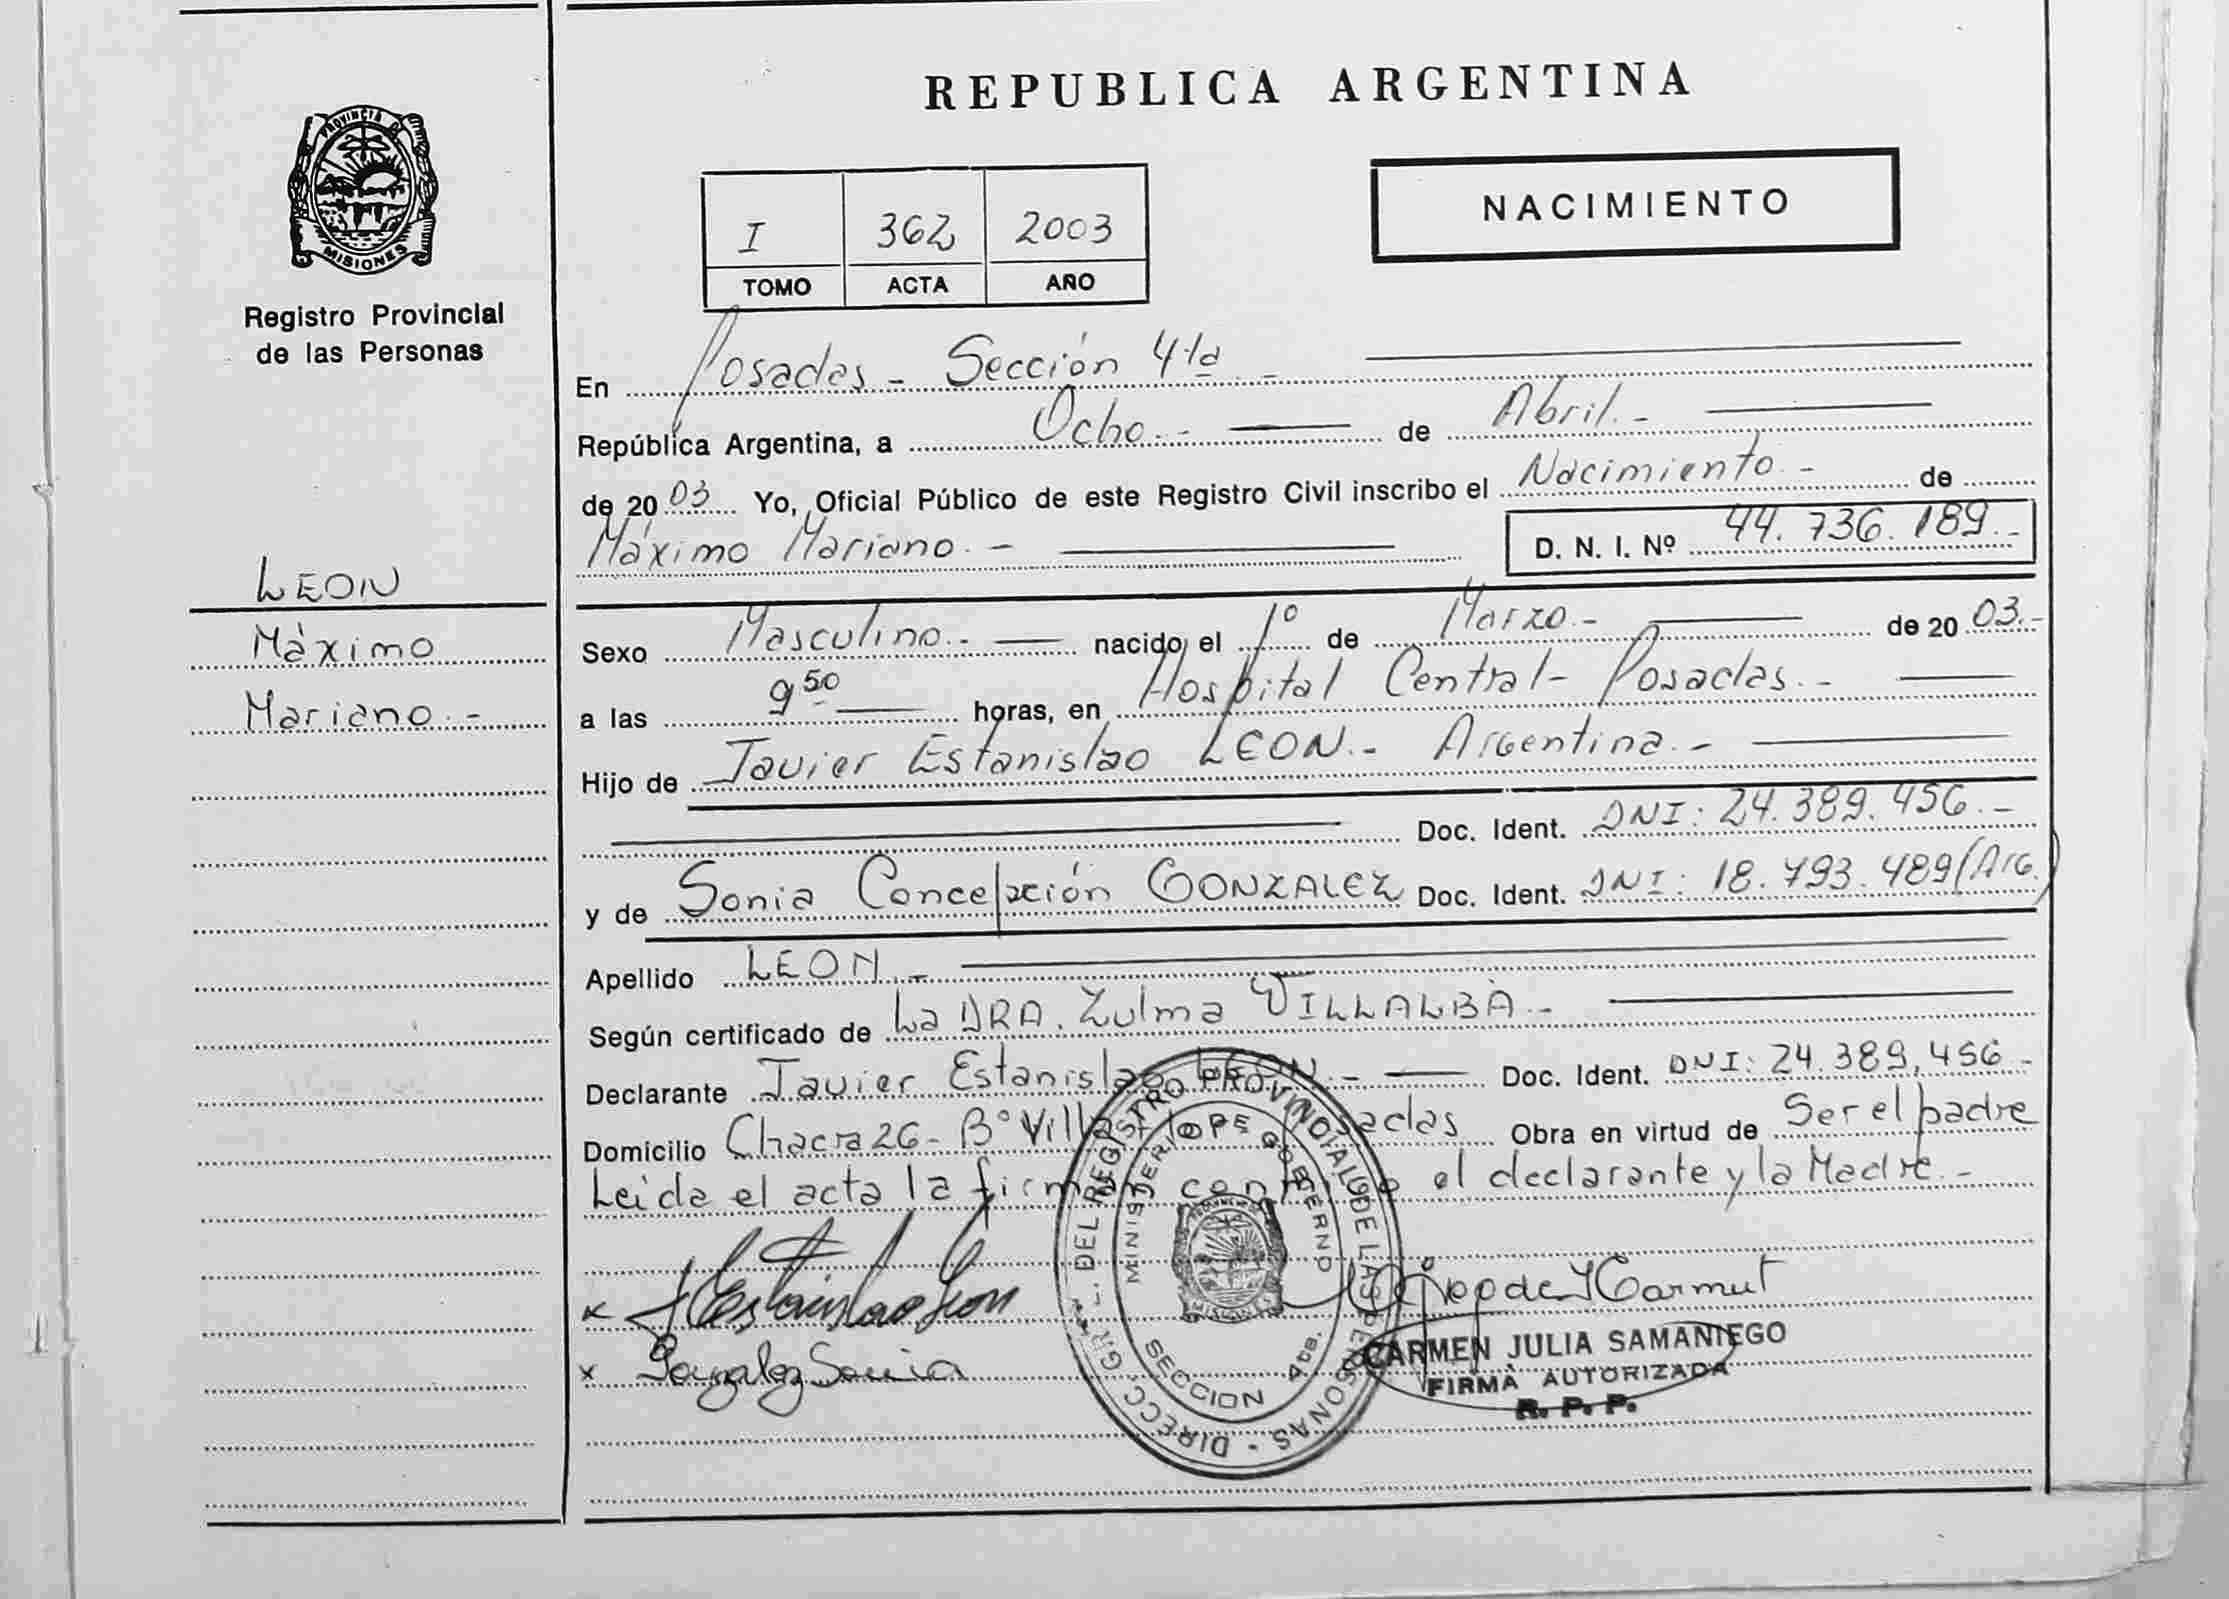 REPUBLICA ARGENTINA
PROVINCIA DE
MISIONES
Registro Provincial
de las Personas
NACIMIENTO
I 362 2003
TOMO ACTA AÑO
LEON
Máximo
Mariano.-
En Posadas - Sección 4ta -
República Argentina, a Ocho.- de Abril.-
de 2003 Yo, Oficial Público de este Registro Civil inscribo el Nacimiento.- de
Máximo Mariano.- D. N. I. Nº 44.736.189.-
Sexo Masculino.- nacido el 1º de Marzo.- de 2003.-
a las 9 50 horas, en Hospital Central - Posadas.-
Hijo de Javier Estanislao LEON.- Argentina.-
Doc. Ident. DNI: 24.389.456.-
y de Sonia Concepción GONZALEZ Doc. Ident. DNI: 18.793.489 (Arg.)
Apellido LEON.-
Según certificado de La DRA. Zulma VILLALBA.-
Declarante Javier Estanislao LEON.- Doc. Ident. DNI: 24.389.456.-
Domicilio Chacra 26 - Bº Obra en virtud de Ser el padre
Leida el acta la firman conmigo el declarante y la Madre.-
Gonzalez Sonia
DIRECC. GRAL. DEL REGISTRO PROVINCIAL DE LAS PERSONAS -
MINISTERIO DE GOBIERNO
SECCION 4ta.
MISIONES
CARMEN JULIA SAMANIEGO
FIRMA AUTORIZADA
R. P. P.